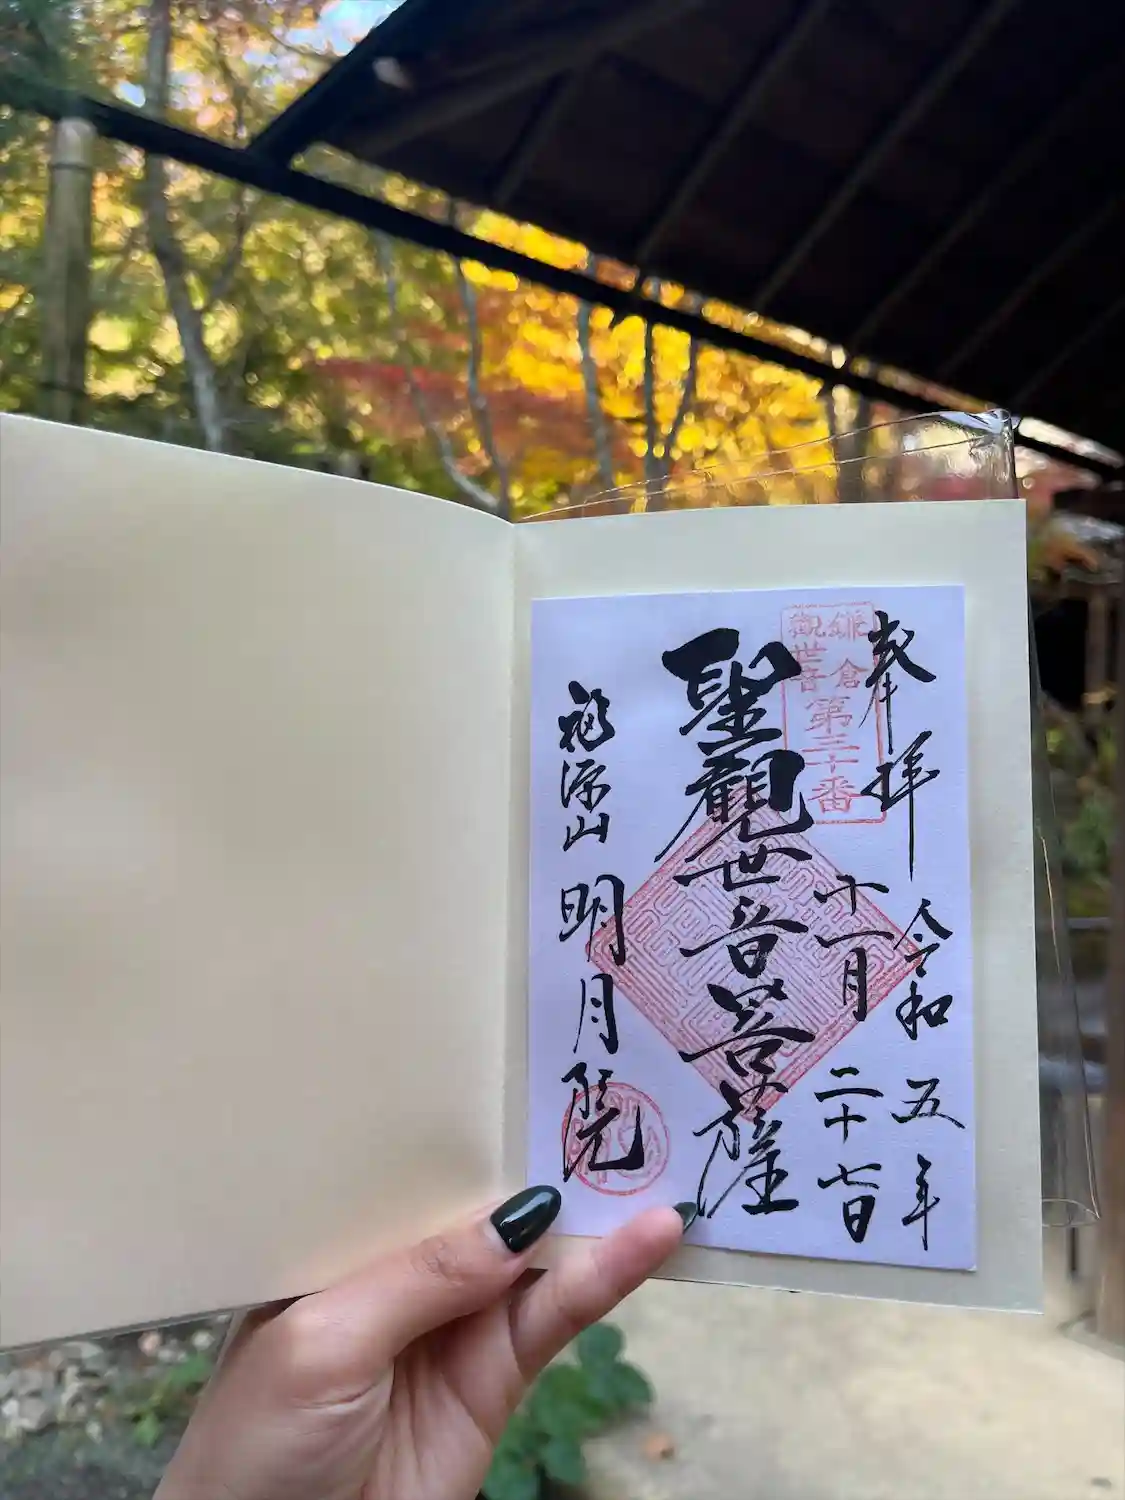 奉拝
令和五年
十一月二十七日
鎌倉
觀世音
第三十番
聖觀世音菩薩
福源山明月院